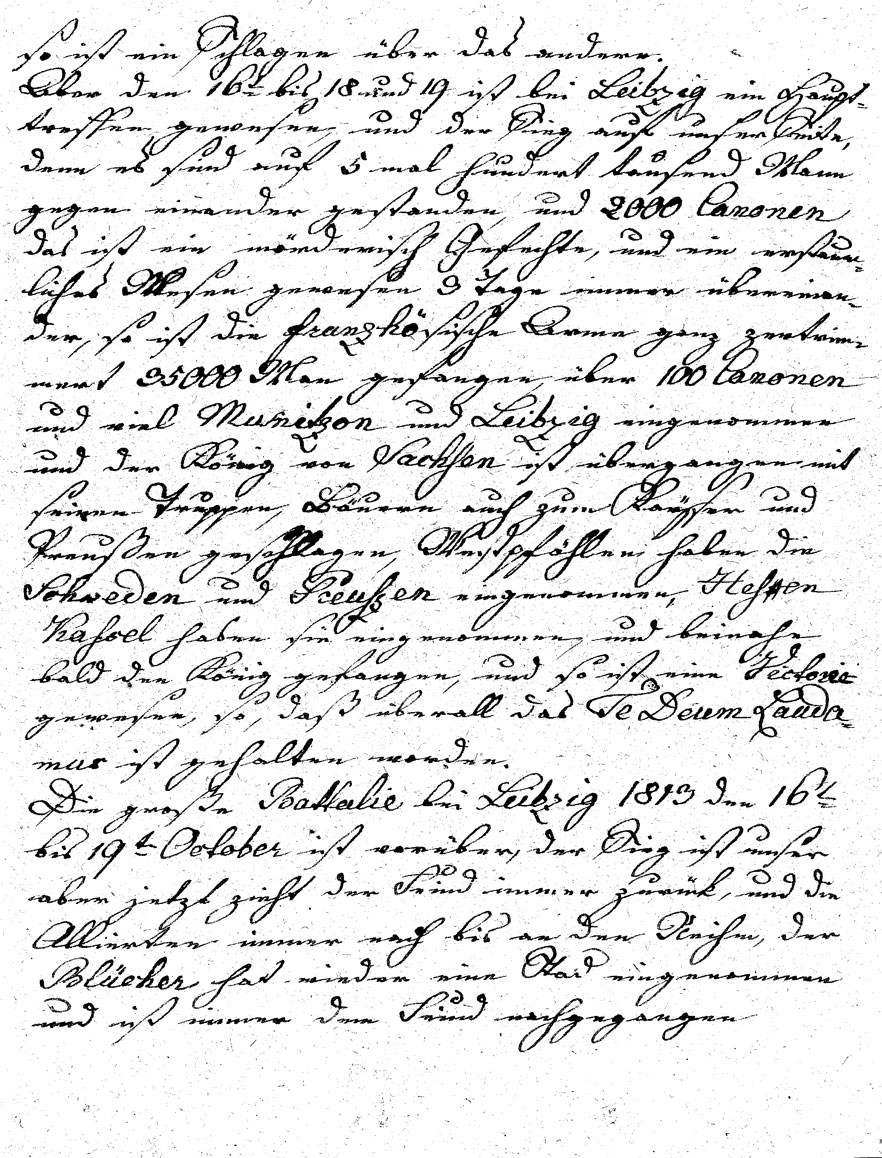 so ist ein Schlagen über das andere.
Aber den 16t bis 18 und 19 ist bei Leibzig ein Haupt-
treffen gewesen, und der Sieg auf unser Seite,
denn es sind auf 5 mal hundert tausend Mann
gegen einander gestanden, und 2000 Canonen
das ist ein mörderisch Gefechte, und ein erstaun-
liches Wesen gewesen 3 Tage immer übereinan-
der, so ist die franzhösische Arme ganz zertrim-
mert 35000 Man gefangen, über 100 Canonen
und viel Munitzon und Leibzig eingenommen
und der König von Sachsen ist übergangen mit
seinen Truppen, Bäuern auch zum Kaÿser und
Preußen geschlagen, Westpfählen haben die
Schweden und Preuszen eingenommen, Hessen
Kassel haben sie eingenommen, und beinahe
bald den König gefangen, und so ist eine Fictorie
gewesen, so, daß überall das Te Deum Lauda-
mus ist gehalten worden.
Die große Battalie bei Leibzig 1813 den 16t
bis 19t October ist vorüber, der Sieg ist unser
aber jetzt zieht der Feind immer zurück, und die
Allierten immer nach bis an den Reihn, der
Blücher hat wieder eine Stad eingenommen
und ist immer dem Feind nachgegangen